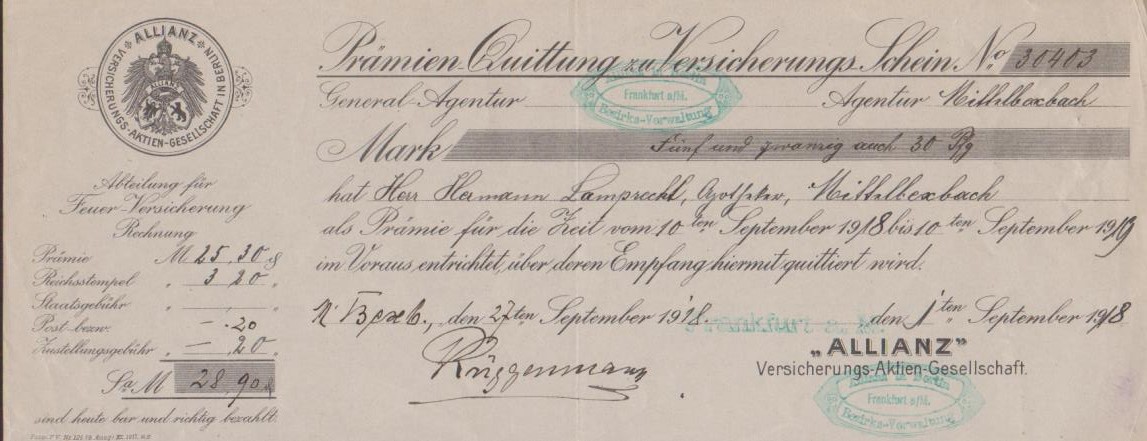 ALLIANZ
VERSICHERUNGS-AKTIEN-GESELLSCHAFT IN BERLIN
ALLIANZ
Abteilung für
Feuer-Versicherung
Rechnung
Prämie M. 25,30 ₰
Reichsstempel " 3 20 "
Staatsgebühr " "
Post bezw. — .20
Zustellungsgebühr " — 20 "
Sa M 28 90 ₰
sind heute bar und richtig bezahlt.
Prämien-Quittung zu Versicherungs-Schein No. 30403
General-Agentur Agentur Mittelbexbach
Allianz in Berlin
Frankfurt a/M.
Bezirks-Verwaltung
Mark Fünf und zwanzig auch 30 Pfg
hat Herr Hermann Lamprecht, Apotheker, Mittelbexbach
als Prämie für die Zeit vom 10ten September 1918 bis 10ten September 1919
im Voraus entrichtet, über deren Empfang hiermit quittiert wird.
M. Bexb., den 27ten September 1918. den 1ten September 1918
„ALLIANZ"
Versicherungs-Aktien-Gesellschaft.
Rüggenmann
Allianz in Berlin
Frankfurt a/M.
Bezirks-Verwaltung